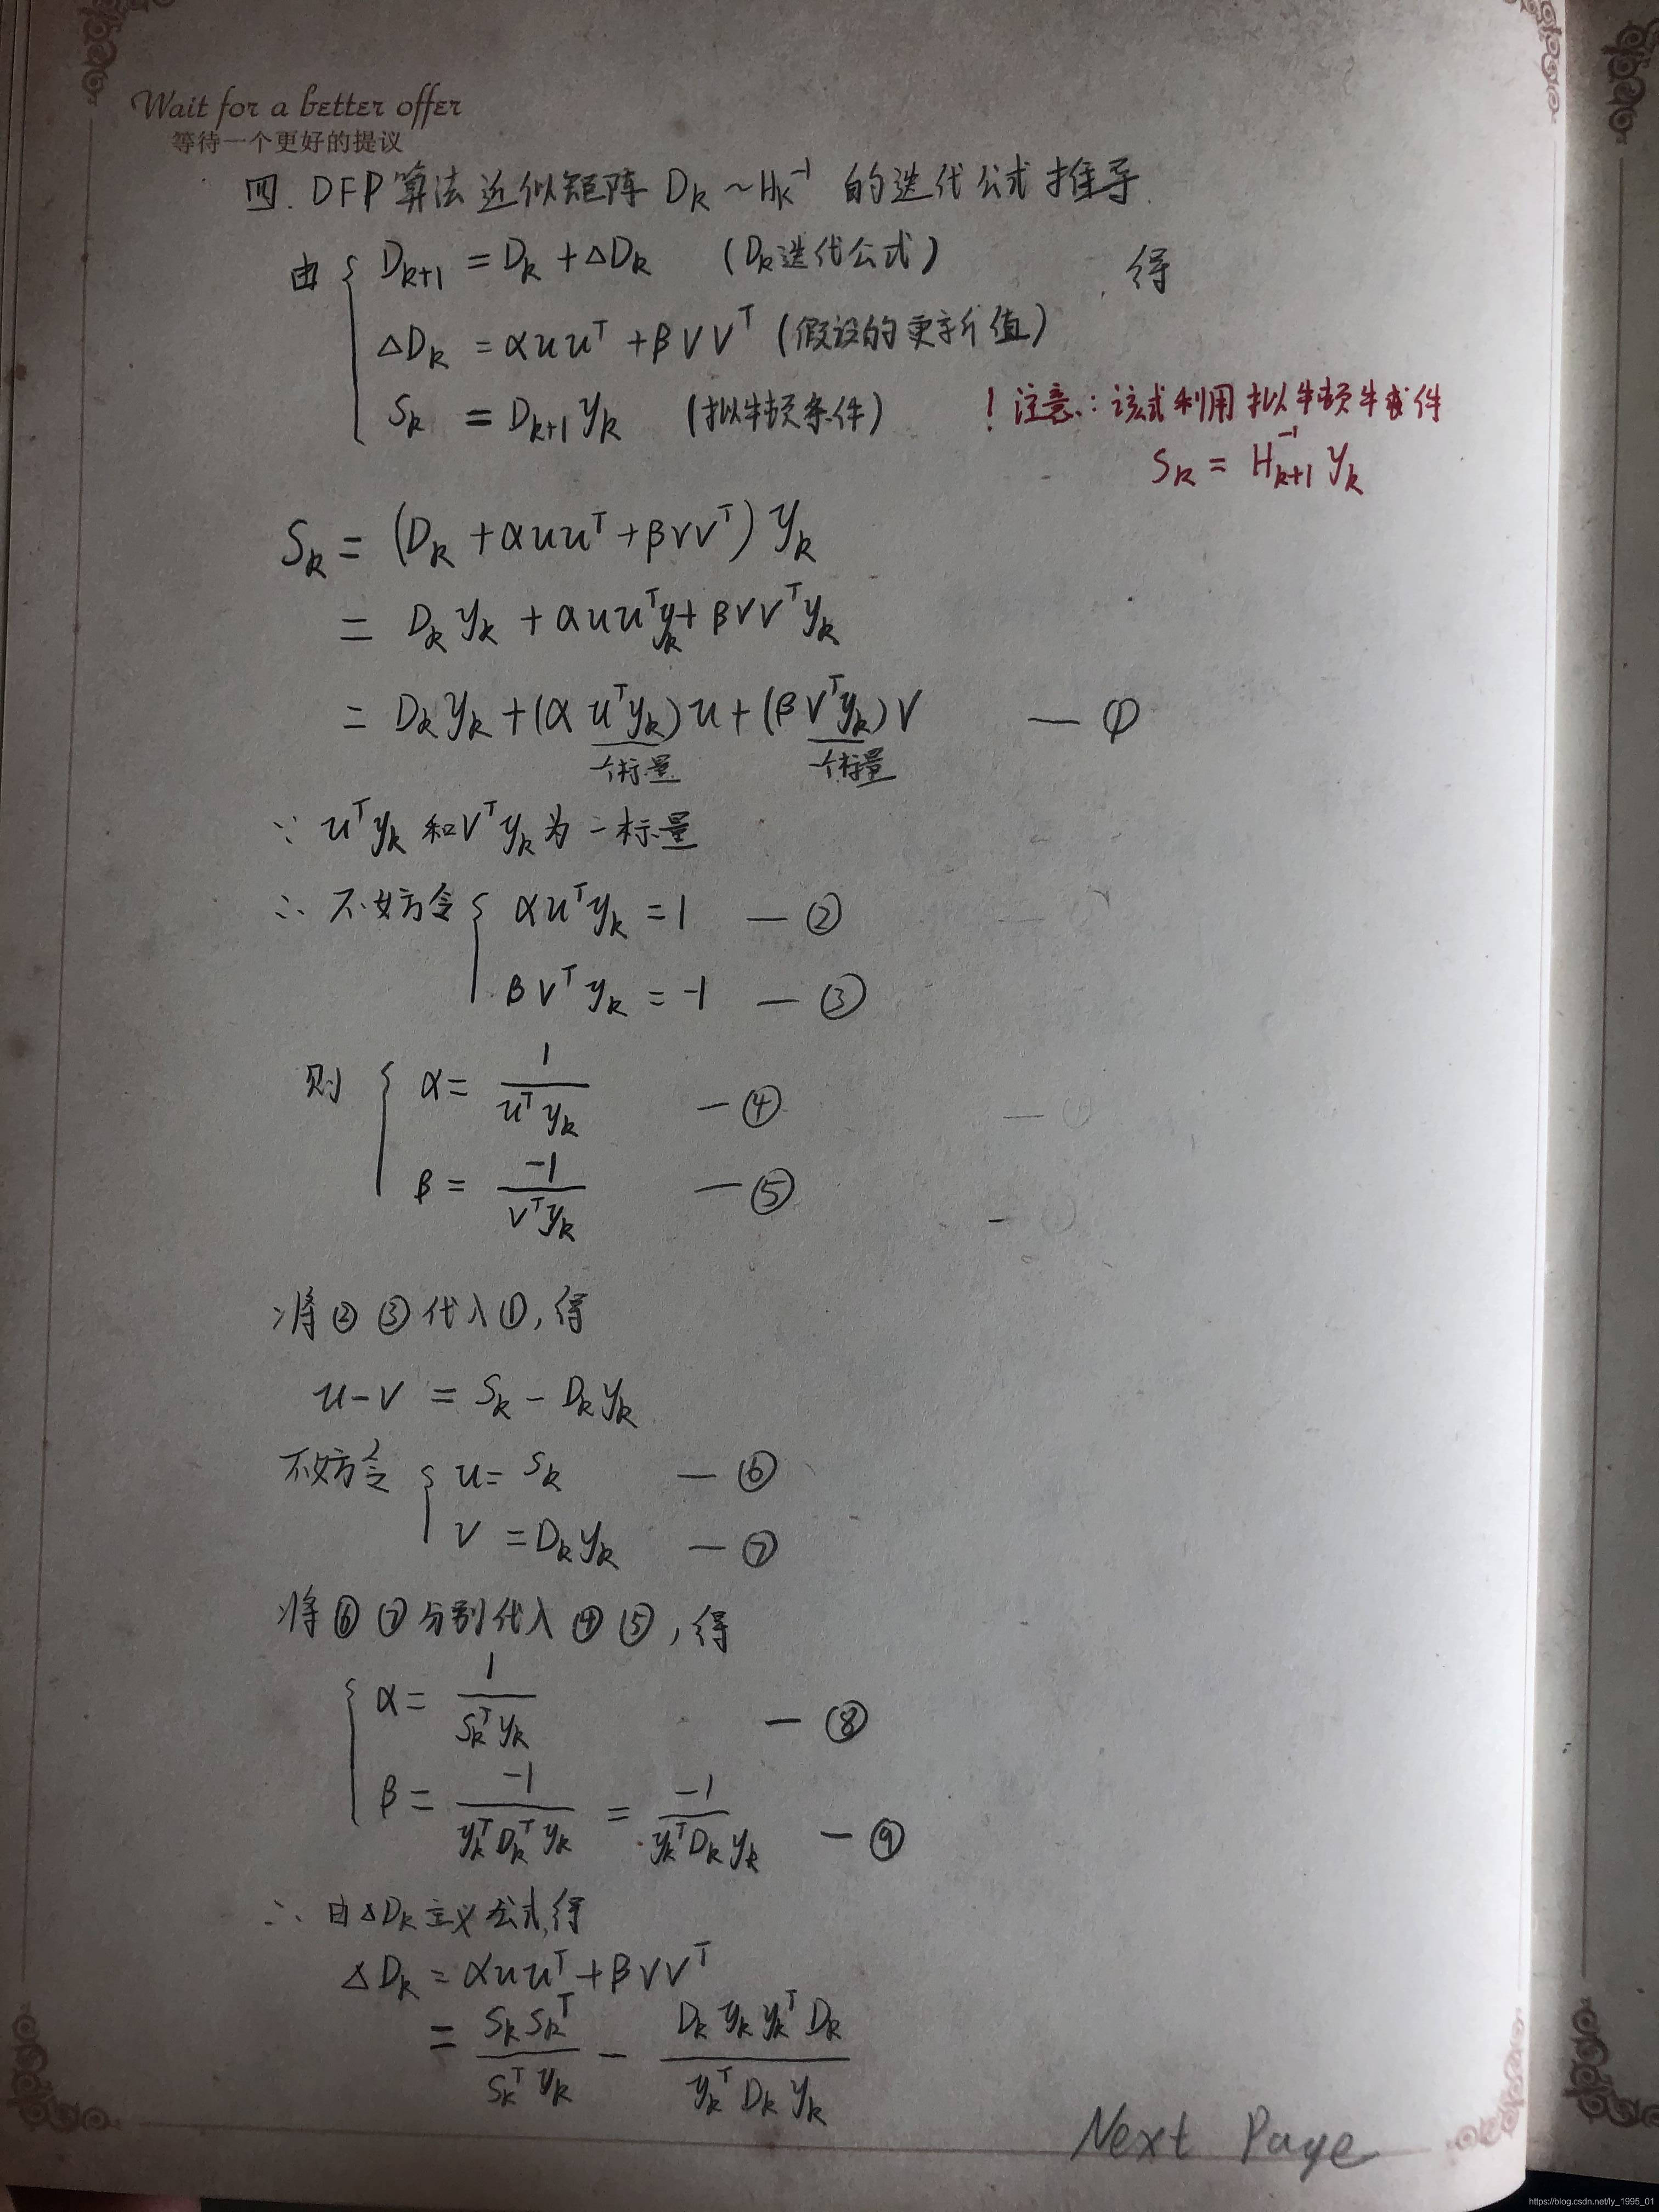 Wait for a better offer
等待一个更好的提议
四. DFP算法近似矩阵 D_k ~ H_k^{-1} 的迭代公式推导.
由 { D_{k+1} = D_k + ΔD_k (D_k迭代公式) 得
ΔD_k = αuu^T + βvv^T (假设的更新值)
S_k = D_{k+1} y_k (拟牛顿条件) ! 注意: 该式利用拟牛顿条件
S_k = H_{k+1}^{-1} y_k
S_k = (D_k + αuu^T + βvv^T) y_k
= D_k y_k + αuu^T y_k + βvv^T y_k
= D_k y_k + (α u^T y_k)u + (β v^T y_k)v — ①
一个标量 一个标量
∵ u^T y_k 和 v^T y_k 为一标量
∴ 不妨令 { αu^T y_k = 1 — ②
βv^T y_k = -1 — ③
则 { α = \frac{1}{u^T y_k} — ④
β = \frac{-1}{v^T y_k} — ⑤
将②③代入①, 得
u - v = S_k - D_k y_k
不妨令 { u = S_k — ⑥
v = D_k y_k — ⑦
将⑥⑦分别代入④⑤, 得
{ α = \frac{1}{S_k^T y_k} — ⑧
β = \frac{-1}{y_k^T D_k^T y_k} = \frac{-1}{y_k^T D_k y_k} — ⑨
∴ 由ΔD_k定义公式,得
ΔD_k = αuu^T + βvv^T
= \frac{S_k S_k^T}{S_k^T y_k} - \frac{D_k y_k y_k^T D_k}{y_k^T D_k y_k}
Next Page
https://blog.csdn.net/ly_1995_01